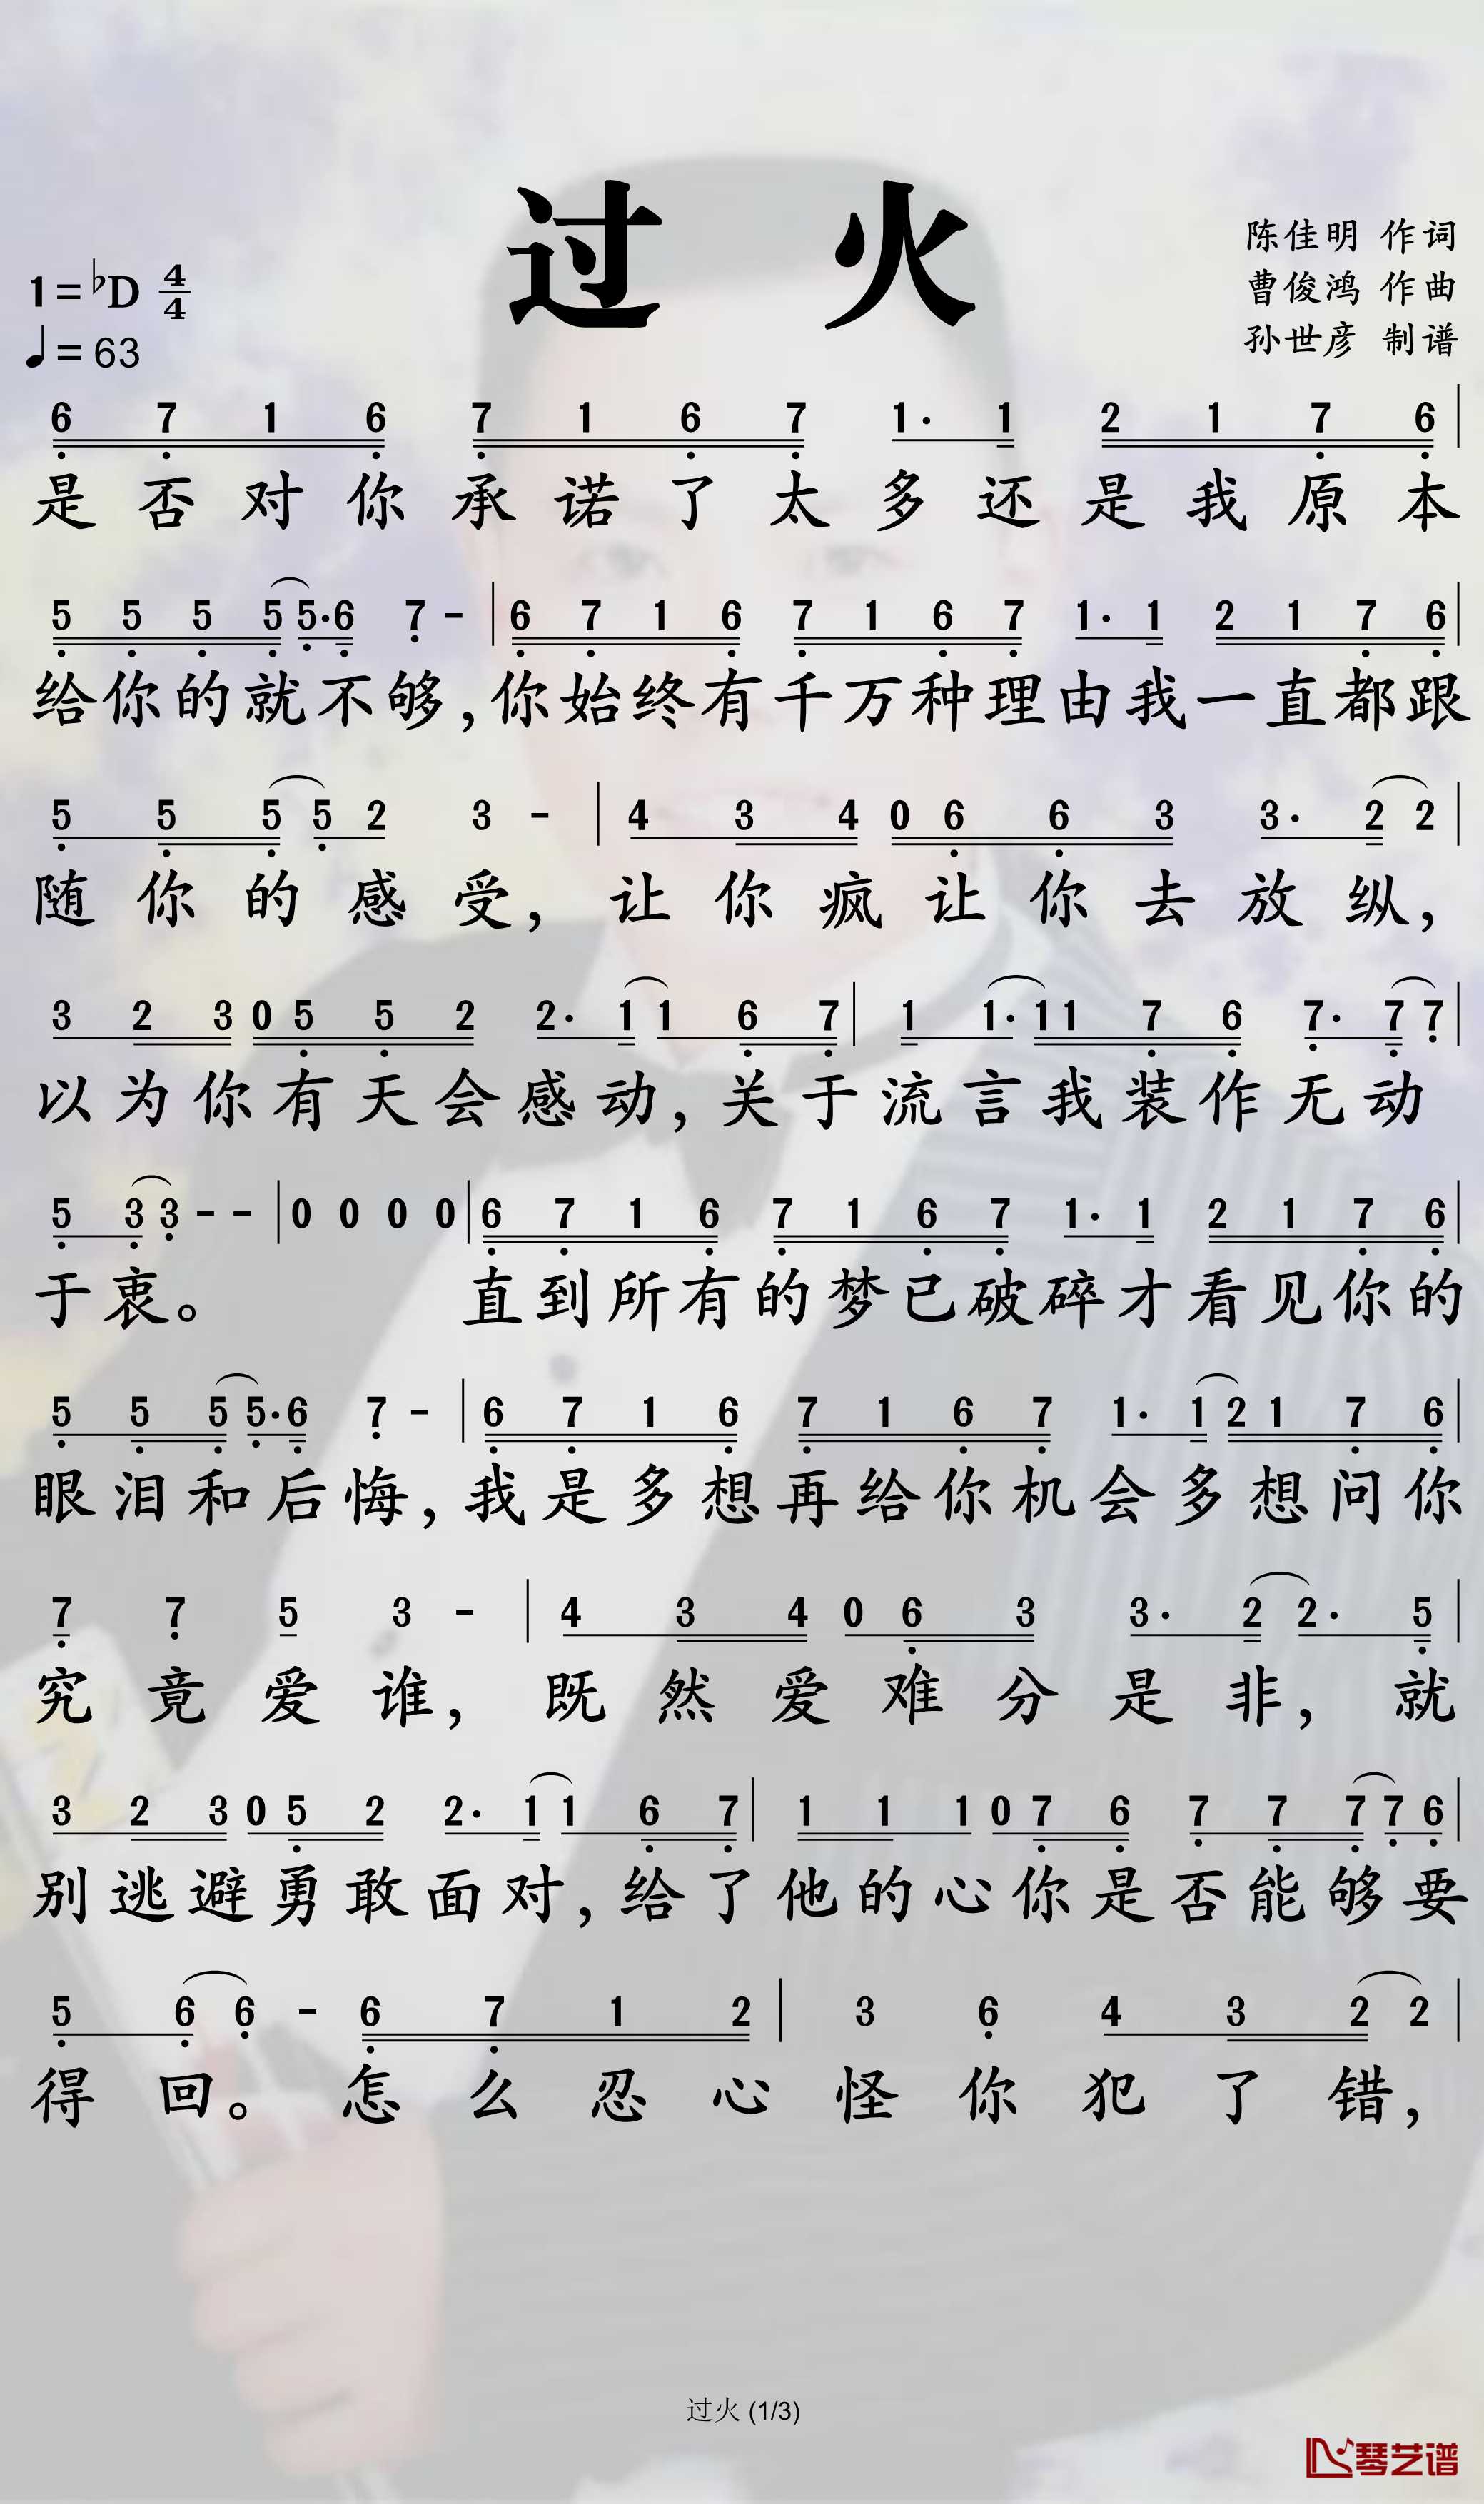 过 火
陈佳明 作词
曹俊鸿 作曲
孙世彦 制谱
1=♭D 4/4
♩=63
6 7 1 6 7 1 6 7 1· 1 2 1 7 6 |
是否对你承诺了太多还是我原本
5 5 5 5 5·6 7 - | 6 7 1 6 7 1 6 7 1· 1 2 1 7 6 |
给你的就不够,你始终有千万种理由我一直都跟
5 5 5 5 2 3 - | 4 3 4 0 6 6 3 3· 2 2 |
随你的感受,让你疯让你去放纵,
3 2 3 0 5 5 2 2· 1 1 6 7 | 1 1· 1 1 7 6 7· 7 7 |
以为你有天会感动,关于流言我装作无动
5 3 3 - - | 0 0 0 0 | 6 7 1 6 7 1 6 7 1· 1 2 1 7 6 |
于衷。 直到所有的梦已破碎才看见你的
5 5 5 5·6 7 - | 6 7 1 6 7 1 6 7 1· 1 2 1 7 6 |
眼泪和后悔,我是多想再给你机会多想问你
7 7 5 3 - | 4 3 4 0 6 3 3· 2 2· 5 |
究竟爱谁,既然爱难分是非,就
3 2 3 0 5 2 2· 1 1 6 7 | 1 1 1 0 7 6 7 7 7 7 6 |
别逃避勇敢面对,给了他的心你是否能够要
5 6 6 - 6 7 1 2 | 3 6 4 3 2 2 |
得回。怎么忍心怪你犯了错,
过火 (1/3)
琴艺谱